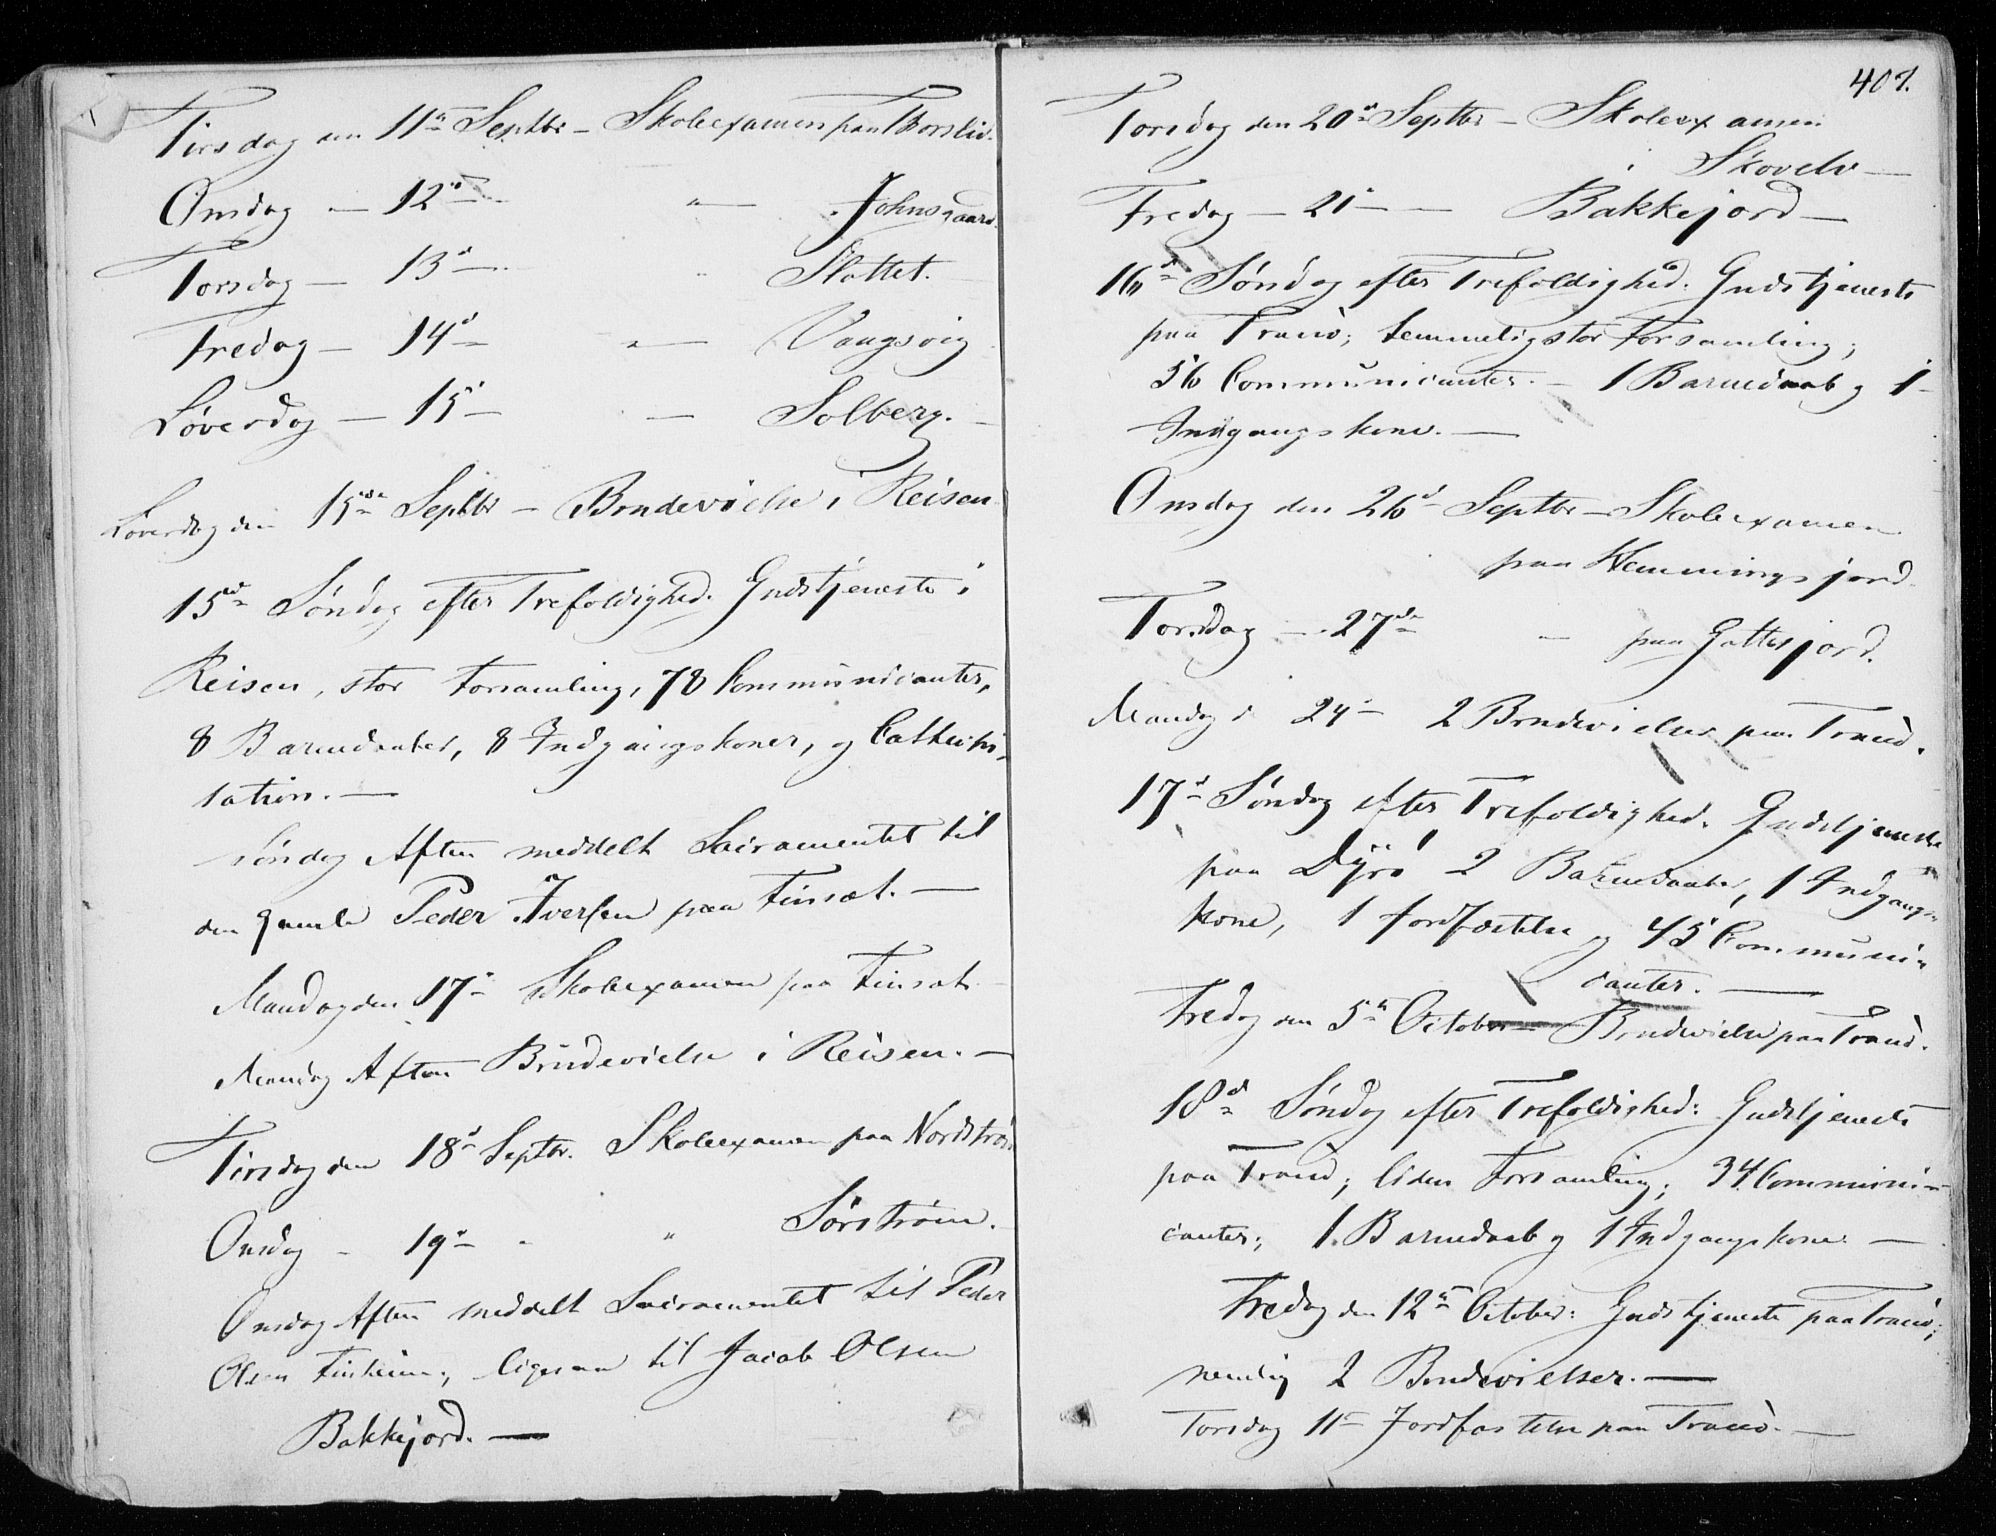 Tirsdag den 11te Septbr – Skoleexamen paa Thorsliv.
Onsdag — 12te — " — Johnsgaard.
Torsdag — 13de — " Slottet.
Fredag — 14de — " — Vangsvig
Løverdag — 15 — — Solberg. —
Løverdag den 15de Septbr – Brudevielse i Reisen
15de Søndag efter Trefoldighed. Gudstjeneste i
Reisen, stor Forsamling, 78 Communicanter,
8 Barnedaaber, 8 Indgangskoner, og Cathechi-
sation. —
Søndag Aften meddelt Sacramentet til
den gamle Peder Iversen paa Finsæt. —
Mandag den 17de Skoleexamen paa Finsæt. —
Mandag Aften Brudevielse i Reisen. —
Tirsdag den 18de Septbr. Skoleexamen paa Nordstrøm
Onsdag – 19de – " Sørstrøm.
Onsdag Aften meddelt Sacramentet til Peder
Olsen Finheim; ligesaa til Jacob Olsen
Bakkejord. —
407.
Torsdag den 20de Septbr – Skoleexamen
i Skovelv —
Fredag — 21 — — Bakkejord —
16de Søndag efter Trefoldighed. Gudstjeneste
paa Tranö; temmelig stor Forsamling;
56 Communicanter. – 1 Barnedaab og 1
Indgangskone. —
Onsdag den 26de Septbr – Skoleexamen
paa Hemmingsjord
Torsdag — 27de — paa Gottesjord.
Mandag d 24de 2 Brudevielser paa Tranö.
17de Søndag efter Trefoldighed. Gudstjeneste
paa Dyrö 2 Barnedaaber, 1 Indgangs-
kone, 1 Jordfæstelse og 45 Communi-
canter. —
Fredag den 5te October — Brudevielse paa Tranö.
18de Søndag efter Trefoldighed: Gudstjeneste
paa Tranö; liden Forsamling; 34 Communi-
canter; 1 Barnedaab og 1 Indgangskone. —
Fredag den 12te October: Gudstjeneste paa Tranö;
nemlig 2 Brudevielser. —
Torsdag 11te Jordfæstelse paa Tranö. —